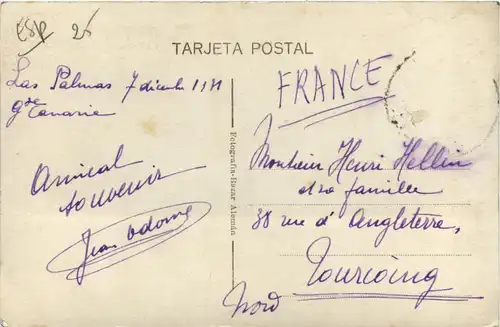 ESP 26
TARJETA POSTAL
Las Palmas 7 diciembre
Gde Canarie
Amical
souvenir
Jean
Fotografía-Bazar Alemán
FRANCE
Monsieur Henri Hellin
et sa famille
38 rue d'Angleterre,
Tourcoing
Nord